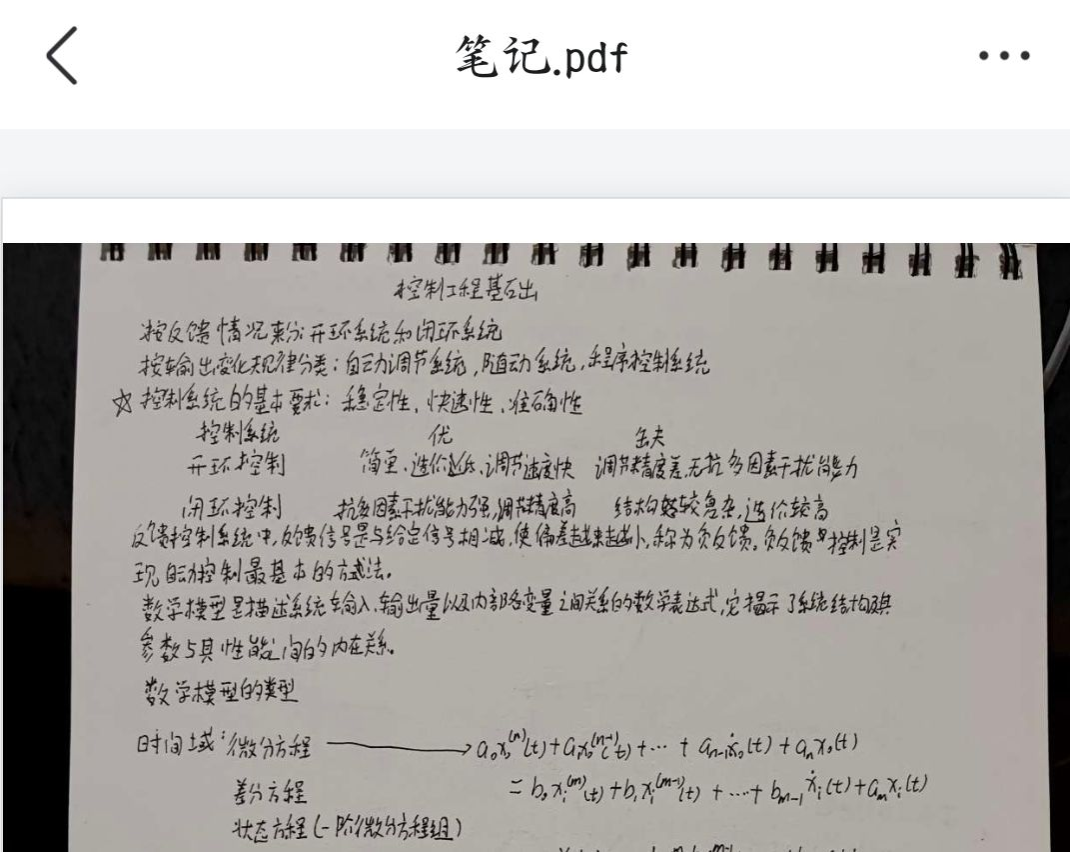 笔记.pdf
控制工程基础
按反馈情况来分:开环系统和闭环系统
按输出变化规律分类:自动调节系统,随动系统,程序控制系统
☆控制系统的基本要求:稳定性、快速性、准确性
控制系统 优 缺
开环控制 简单、造价低、调节速度快 调节精度差、无抗多因素干扰能力
闭环控制 抗多因素干扰能力强,调节精度高 结构较复杂,造价较高
反馈控制系统中,反馈信号是与给定信号相减,使偏差越来越小,称为负反馈。负反馈控制是实
现自动控制最基本的方法。
数学模型是描述系统输入、输出量以及内部各变量之间关系的数学表达式,它揭示了系统结构及其
参数与其性能之间的内在关系。
数学模型的类型
时间域:微分方程 ⟶ a₀x₀⁽ⁿ⁾(t)+a₁x₀⁽ⁿ⁻¹⁾(t)+⋯+aₙ₋₁ẋ₀(t)+aₙx₀(t)
差分方程 =b₀xᵢ⁽ᵐ⁾(t)+b₁xᵢ⁽ᵐ⁻¹⁾(t)+⋯+bₘ₋₁ẋᵢ(t)+aₘxᵢ(t)
状态方程(一阶微分方程组)